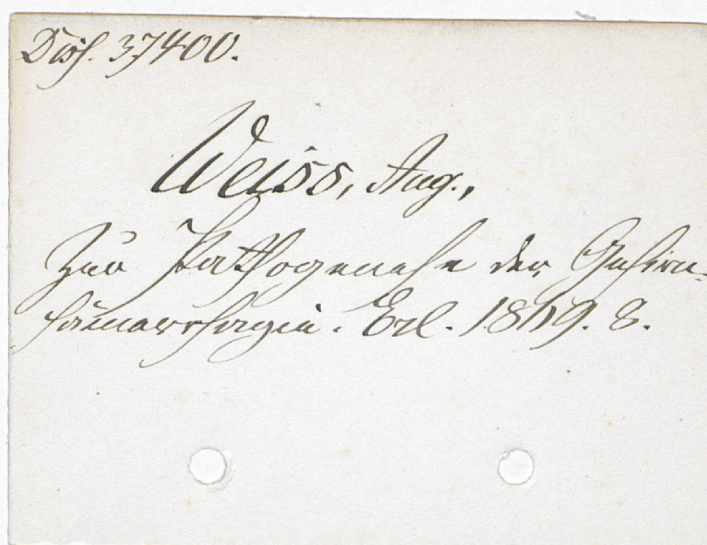 Diss. 37400.
Weiss, Aug.,
Zur Pathogenese der Gehirn-
hämorrhagie. Erl. 1869. 8.